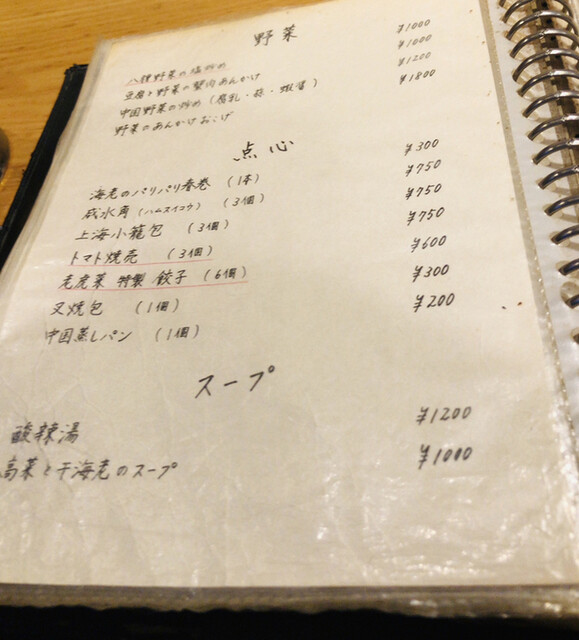 野菜
八種野菜の塩炒め ¥1000
豆腐と野菜の蟹肉あんかけ ¥1000
中国野菜の炒め (腐乳・蒜・蝦醤) ¥1200
野菜のあんかけおこげ ¥1800
点心
海老のパリパリ春巻 (1本) ¥300
咸水角 (ハムスイコウ) (3個) ¥750
上海小籠包 (3個) ¥750
トマト焼売 (3個) ¥750
老虎菜 特製 餃子 (6個) ¥600
叉焼包 (1個) ¥300
中国蒸しパン (1個) ¥200
スープ
酸辣湯 ¥1200
高菜と干海老のスープ ¥1000